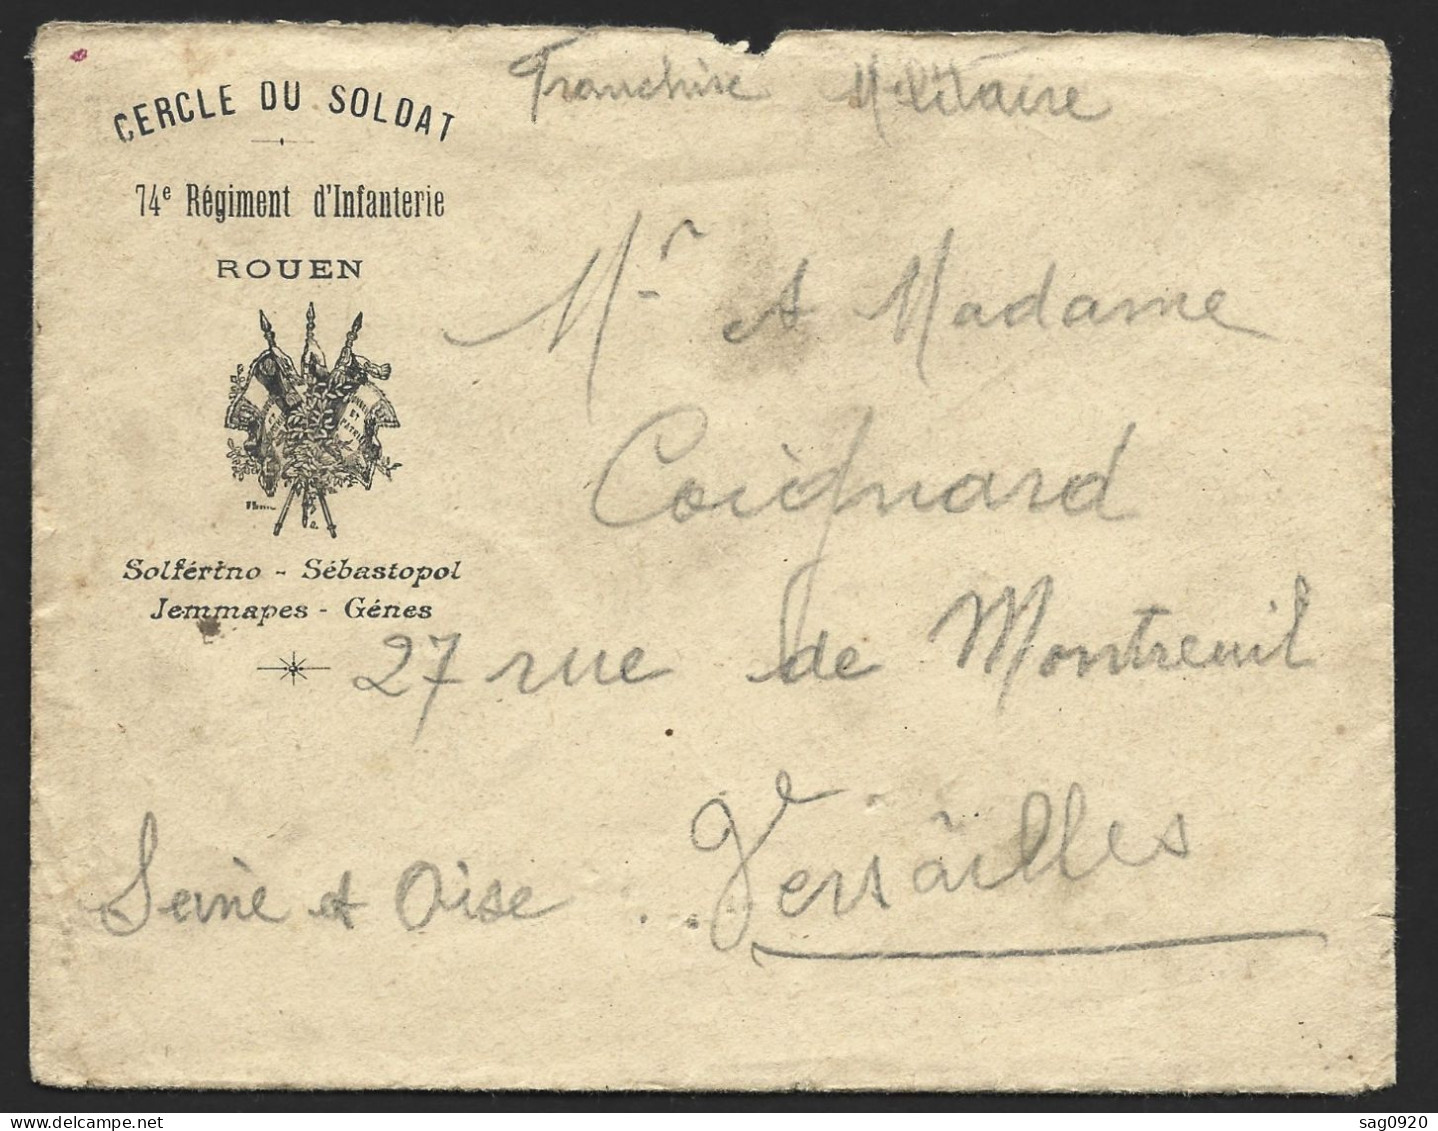 Franchise Militaire
CERCLE DU SOLDAT
74e Régiment d'Infanterie
ROUEN
ET
PATRIE
Solférino - Sébastopol
Jemmapes - Gênes
Mr et Madame
Coignard
27 rue de Montreuil
Versailles
Seine et Oise
delcampe.net
sag0920